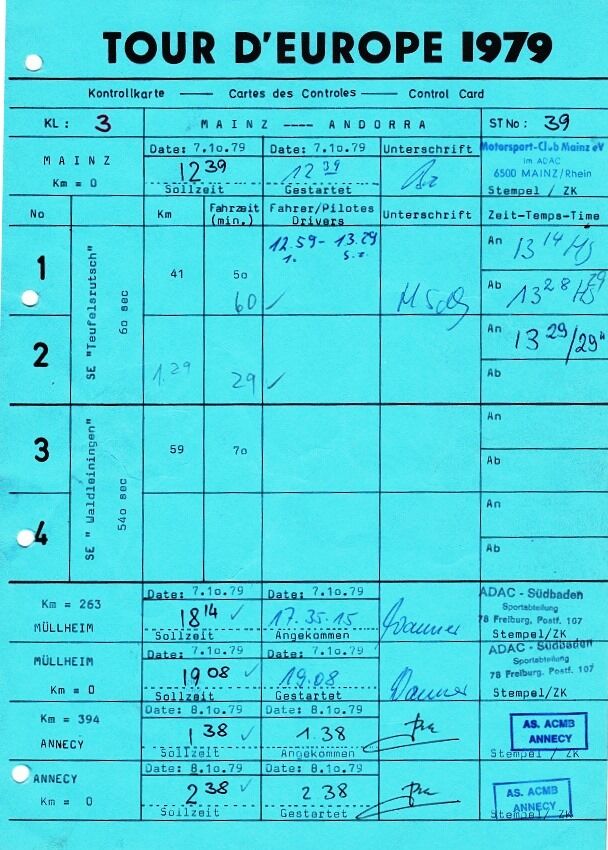 TOUR D'EUROPE 1979
Kontrollkarte —— Cartes des Controles —— Control Card
KL: 3 MAINZ ---- ANDORRA STNo: 39
MAINZ
Km = 0
Date: 7.10.79 Date: 7.10.79 Unterschrift
12 39 12 39
Sollzeit Gestartet
Motorsport-Club Mainz eV
im ADAC
6500 MAINZ/Rhein
Stempel / ZK
No Km Fahrzeit (min.) Fahrer/Pilotes Drivers Unterschrift Zeit-Temps-Time
1
SE "Teufelsrutsch"
60 sec
41 50
60 ✓
12.59 - 13.29
An 13 14
Ab 13 28
2
1.29 29 ✓
An 13 29/29"
Ab
3
SE "Waldleiningen"
540 sec
59 70
An
Ab
4
An
Ab
Km = 263
MÜLLHEIM
Date: 7.10.79 Date: 7.10.79
18 14 ✓ 17.35.15
Sollzeit Angekommen
ADAC - Südbaden
Sportabteilung
78 Freiburg, Postf. 107
Stempel/ZK
MÜLLHEIM
Km = 0
Date: 7.10.79 Date: 7.10.79
19 08 ✓ 19.08
Sollzeit Gestartet
ADAC - Südbaden
Sportabteilung
78 Freiburg, Postf. 107
Stempel/ZK
Km = 394
ANNECY
Date: 8.10.79 Date: 8.10.79
1 38 ✓ 1.38
Sollzeit Angekommen
AS. ACMB
ANNECY
Stempel / ZK
ANNECY
Km = 0
Date: 8.10.79 Date: 8.10.79
2 38 ✓ 2 38
Sollzeit Gestartet
AS. ACMB
ANNECY
Stempel/ ZK